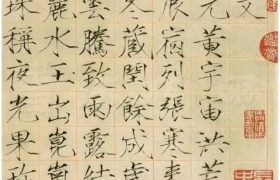 文
元黃宇宙洪荒
辰宿列張寒來
冬藏閏餘成歲
雲騰致雨露結
麗水玉出崑
珠稱夜光果珍